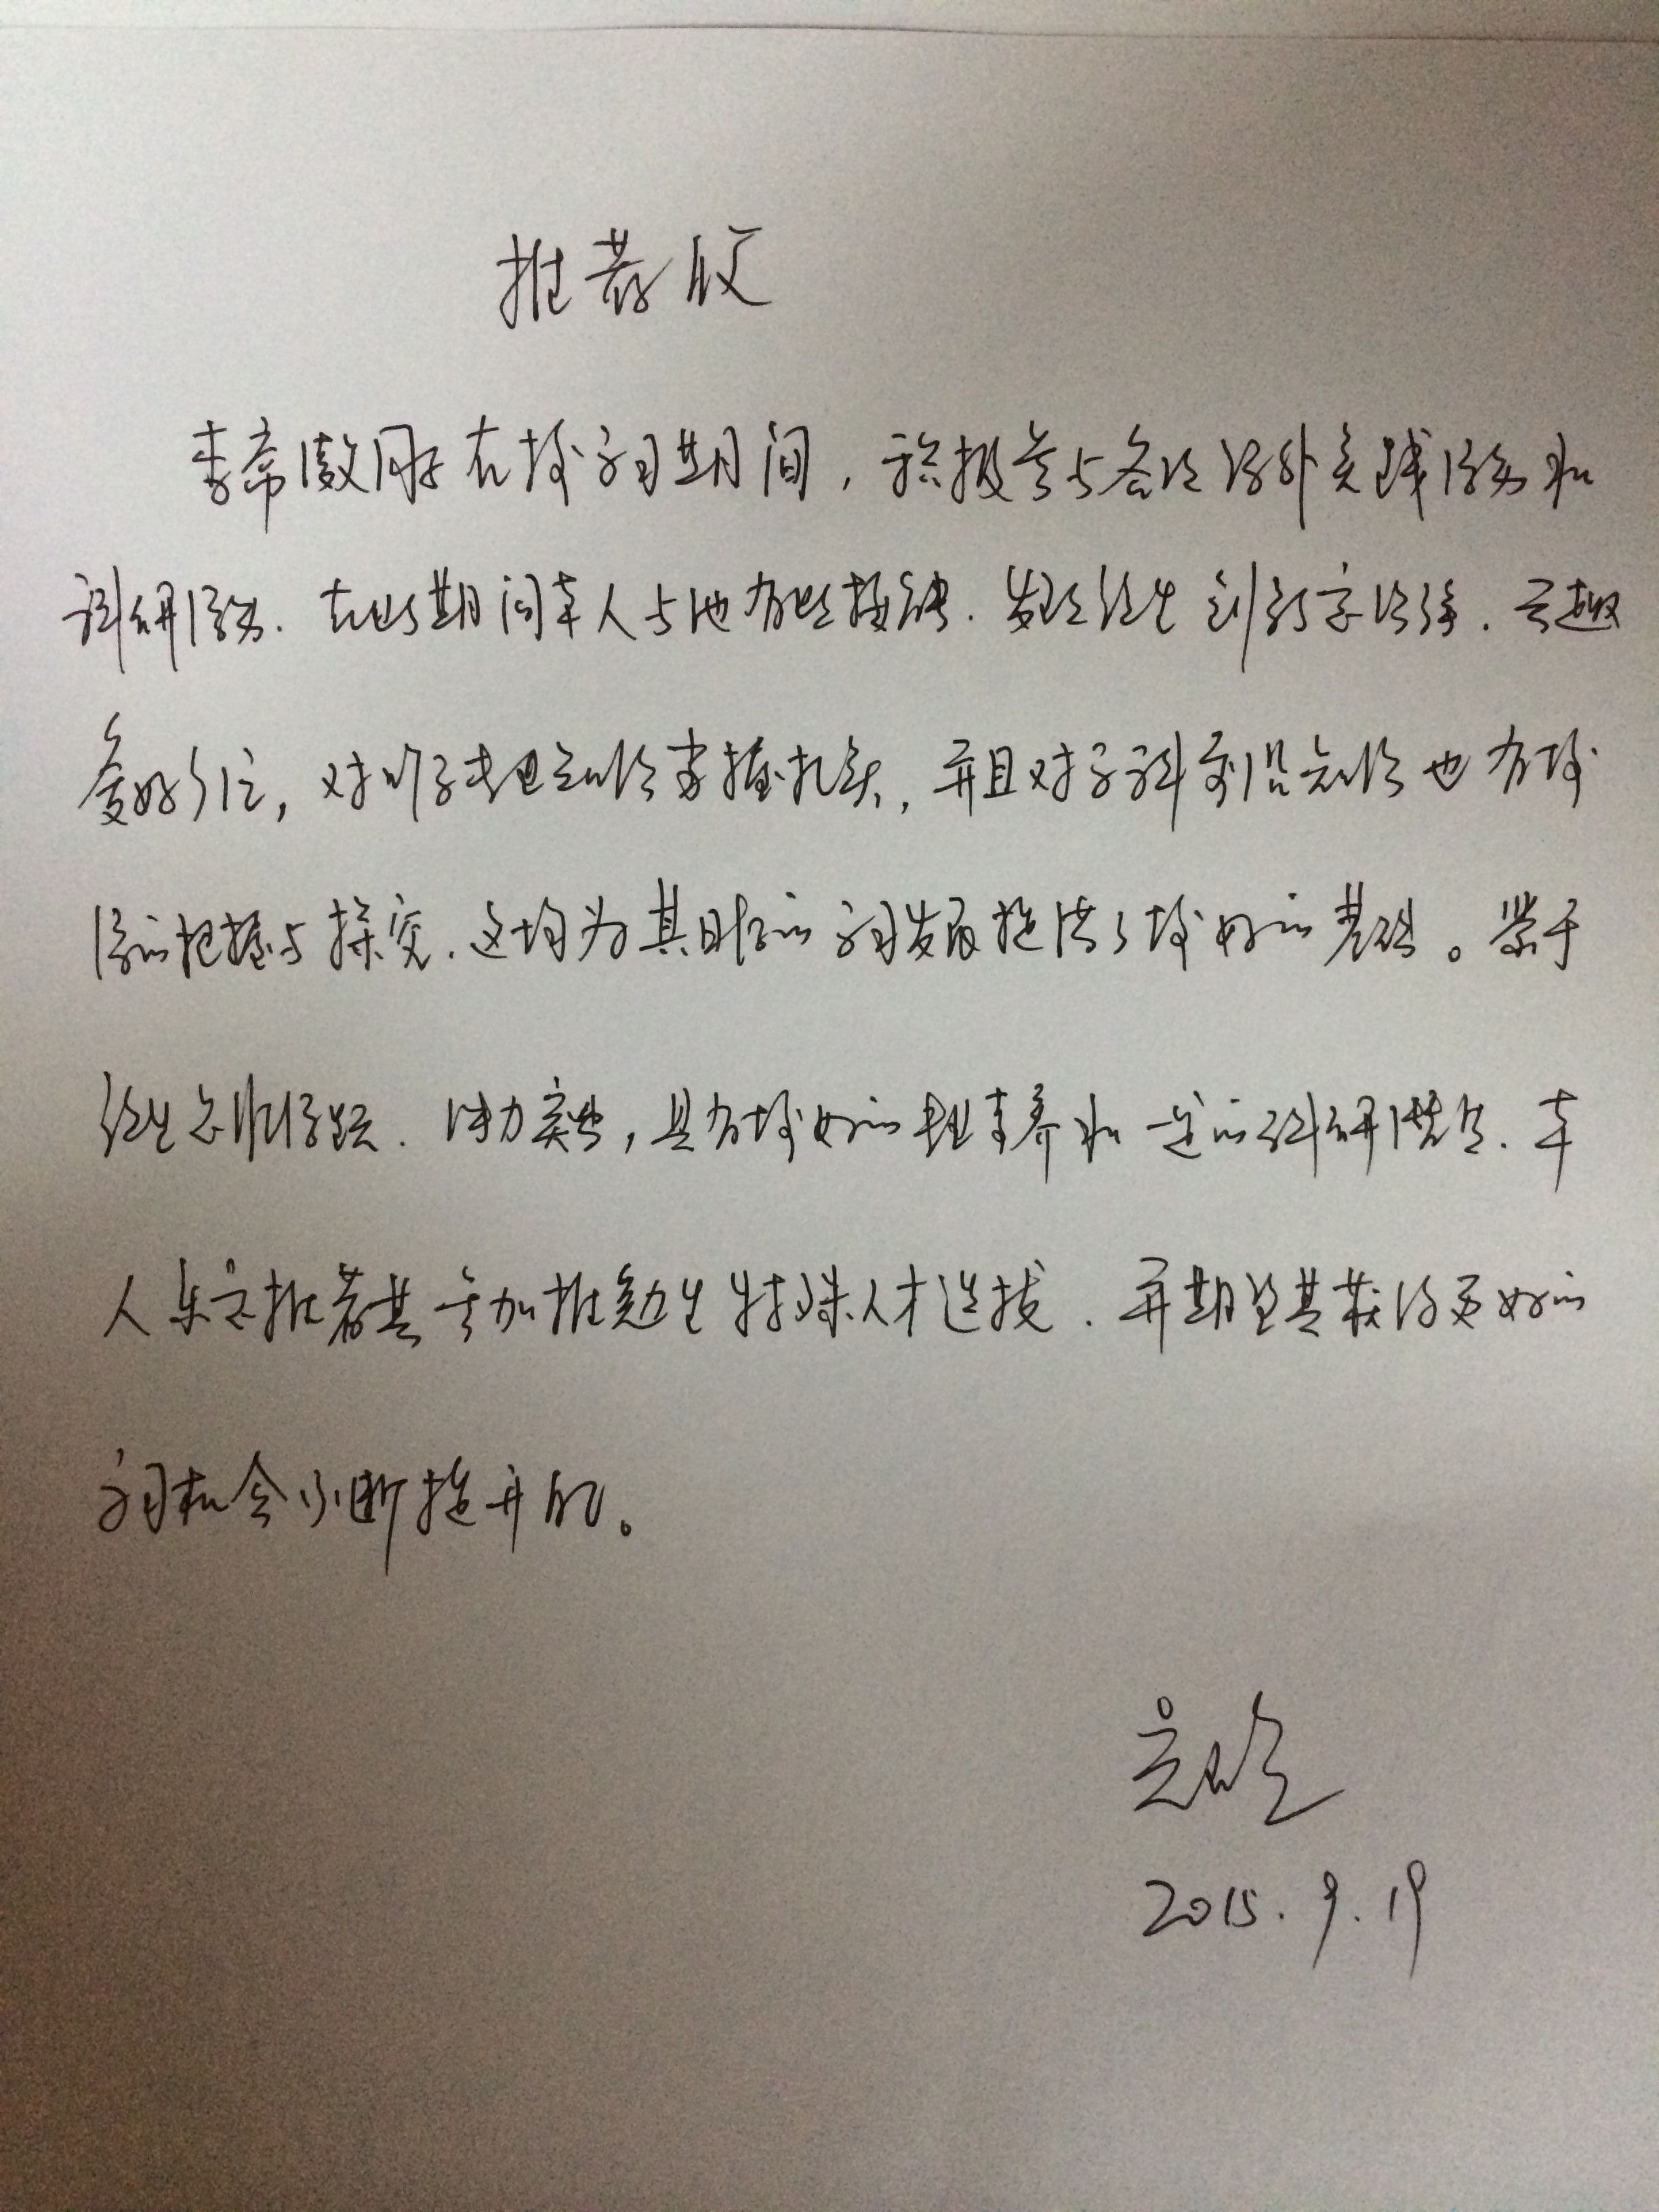 推荐书
李希傲同学在校学习期间，积极参与各项课外实践活动和
科研活动。在此期间本人与他有些接触，发现该生刻苦，兴趣
爱好广泛，对所学专业知识掌握扎实，并且对学科前沿知识也有较
深的把握与探究，这均为其日后的学习发展提供了较好的基础。鉴于
该生表现活跃、能力突出，具有较好的专业素养和一定的科研潜力，本
人乐意推荐其参加推免生特殊人才选拔，并期望其获得更好的
学习机会不断提升自己。
2015.9.19